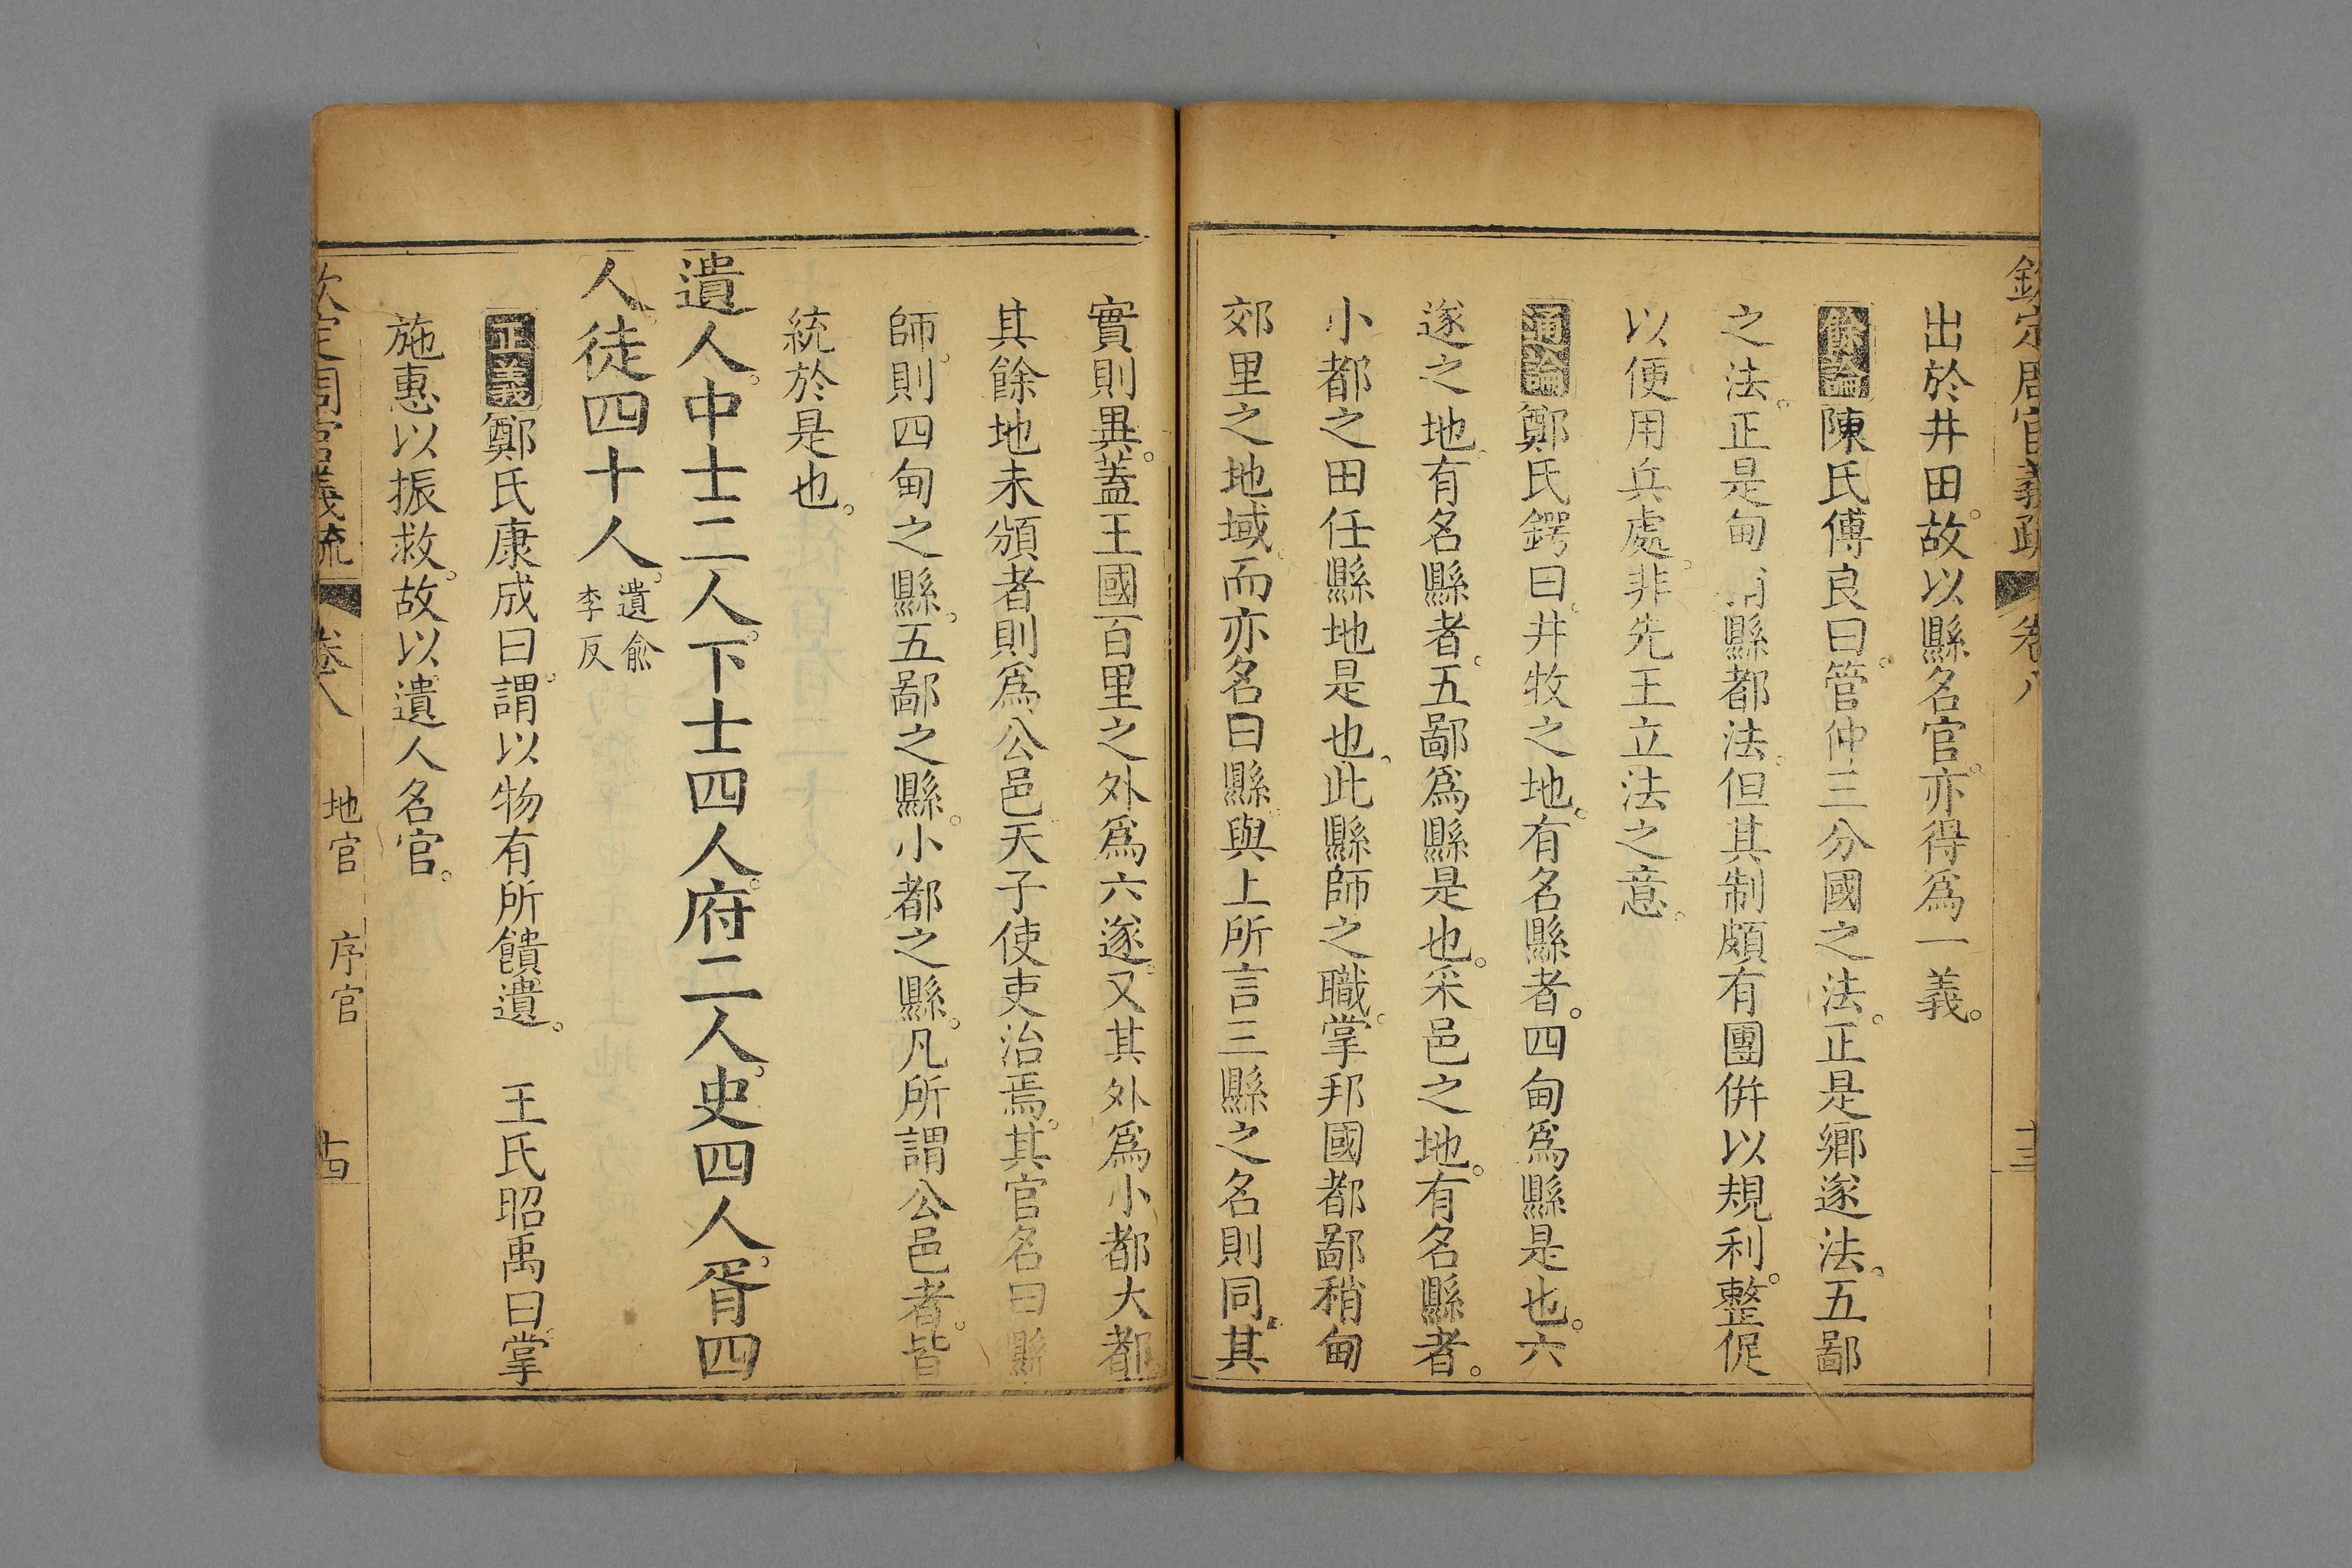 欽定周官義疏 卷八 十三
出於井田。故以縣名官。亦得爲一義。
餘論陳氏傅良曰。管仲三分國之法。正是鄉遂法。五鄙
之法。正是甸 縣都法。但其制頗有團倂以規利。整促
以便用兵處。非先王立法之意。
通論鄭氏鍔曰。井牧之地。有名縣者。四甸爲縣是也。六
遂之地。有名縣者。五鄙爲縣是也。采邑之地。有名縣者。
小都之田任縣地是也。此縣師之職。掌邦國都鄙稍甸
郊里之地域。而亦名曰縣。與上所言三縣之名則同。其
實則異。蓋王國百里之外爲六遂。又其外爲小都大都
其餘地未頒者則爲公邑天子使吏治焉。其官名曰縣
師。則四甸之縣。五鄙之縣。小都之縣。凡所謂公邑者。皆
統於是也。
遺人。中士二人。下士四人。府二人。史四人。胥四
人。徒四十人。遺俞
李反
正義鄭氏康成曰。謂以物有所饋遺。 王氏昭禹曰。掌
施惠以振救。故以遺人名官。
欽定周官義疏 卷八 地官 序官 十四